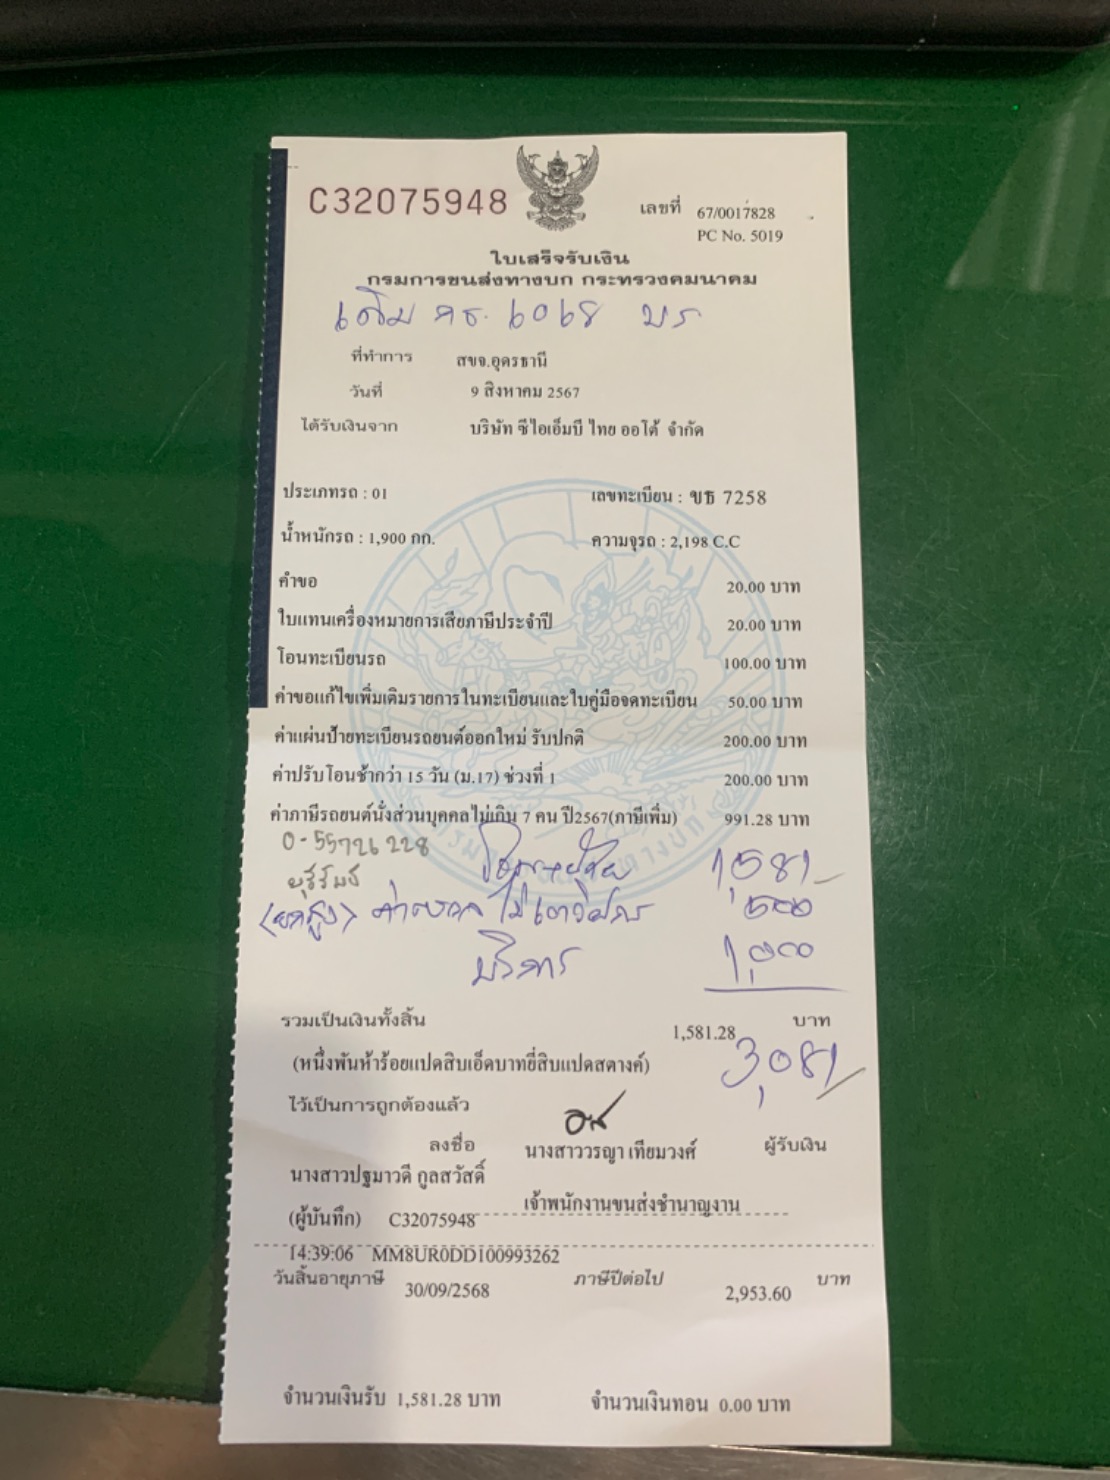 C32075948
เลขที่ 67/0017828
PC No. 5019
ใบเสร็จรับเงิน
กรมการขนส่งทางบก กระทรวงคมนาคม
เดิม 6068 บร
ที่ทำการ สขจ.อุดรธานี
วันที่ 9 สิงหาคม 2567
ได้รับเงินจาก บริษัท ซีไอเอ็มบี ไทย ออโต้ จำกัด
ประเภทรถ : 01 เลขทะเบียน : ขธ 7258
น้ำหนักรถ : 1,900 กก. ความจุรถ : 2,198 C.C
คำขอ 20.00 บาท
ใบแทนเครื่องหมายการเสียภาษีประจำปี 20.00 บาท
โอนทะเบียนรถ 100.00 บาท
ค่าขอแก้ไขเพิ่มเติมรายการในทะเบียนและใบคู่มือจดทะเบียน 50.00 บาท
ค่าแผ่นป้ายทะเบียนรถยนต์ออกใหม่ รับปกติ 200.00 บาท
ค่าปรับโอนช้ากว่า 15 วัน (ม.17) ช่วงที่ 1 200.00 บาท
ค่าภาษีรถยนต์นั่งส่วนบุคคลไม่เกิน 7 คน ปี2567(ภาษีเพิ่ม) 991.28 บาท
0-55726228
1,581
500
บริการ 1,000
รวมเป็นเงินทั้งสิ้น 1,581.28 บาท
3,081
(หนึ่งพันห้าร้อยแปดสิบเอ็ดบาทยี่สิบแปดสตางค์)
ไว้เป็นการถูกต้องแล้ว
ลงชื่อ นางสาววรญา เทียมวงศ์ ผู้รับเงิน
นางสาวปฐมาวดี กูลสวัสดิ์
เจ้าพนักงานขนส่งชำนาญงาน
(ผู้บันทึก) C32075948
14:39:06 MM8UR0DD100993262
วันสิ้นอายุภาษี 30/09/2568 ภาษีปีต่อไป 2,953.60 บาท
จำนวนเงินรับ 1,581.28 บาท จำนวนเงินทอน 0.00 บาท